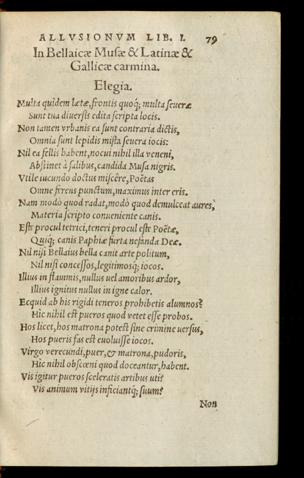 ALLVSIONVM LIB. I. 79
In Bellaicæ Musæ & Latinæ &
Gallicæ carmina.
Elegia.
Multa quidem lætæ, frontis quoq; multa seueræ
Sunt tua diuersis edita scripta locis.
Non tamen vrbanis ea sunt contraria dictis,
Omnia sunt lepidis mista seuera iocis:
Nil ea fellis habent, nocui nihil illa veneni,
Abstinet à salibus, candida Musa nigris.
Vtile iucundo doctus miscêre, Poëtas
Omne ferens punctum, maximus inter eris.
Nam modò quod radat, modò quod demulceat aures,
Materia scripto conueniente canis.
Est procul tetrici, teneri procul est Poëtæ,
Quiq; canis Paphiæ furta nefanda Deæ.
Nil nisi Bellaius bella canit arte politum,
Nil nisi concessos, legitimosq; iocos.
Illius in flammis, nullus uel amoribus ardor,
Illius ignitus nullus in igne calor.
Ecquid ab his rigidi teneros prohibetis alumnos?
Hic nihil est pueros quod vetet esse probos.
Hos licet, hos matrona potest sine crimine uersus,
Hos pueris fas est euoluisse iocos.
Virgo verecundi, puer, & matrona, pudoris,
Hic nihil obscœni quod doceantur, habent.
Vis igitur pueros sceleratis artibus uti?
Vis animum vitijs inficiantq; suum?
Non